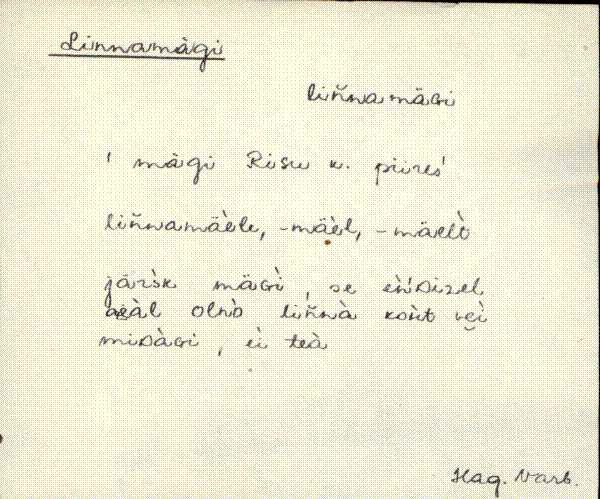 Linnamägi
liňnamäɢi
' mägi Risu k. piires'
liňnamäele, -mäèl, -mäelt̀
järsk mäɢì, se eǹ'ᴅizel
aeàl olǹᴅ liňnà koǹt vei
miᴅàɢi, ei teà
Hag. Varb.